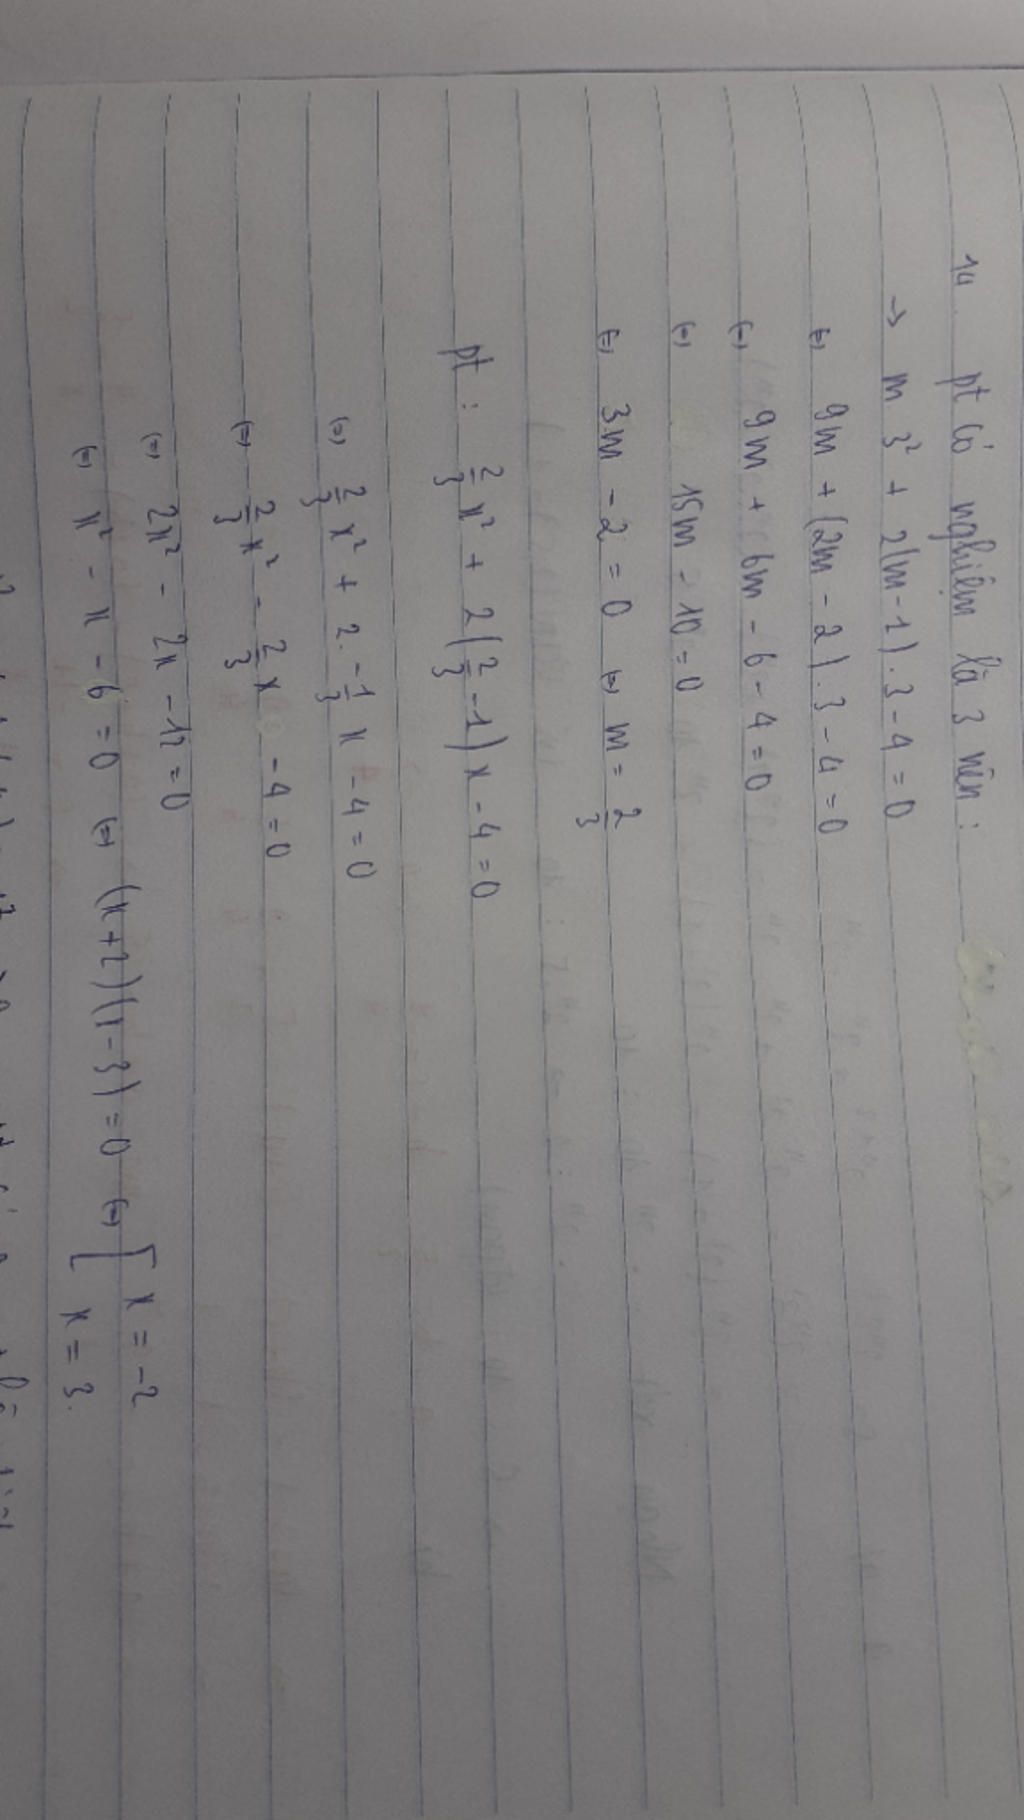 14 pt có nghiệm là 3 nên :
→ m 3² + 2(m-1).3 - 4 = 0
(=) 9m + (2m - 2).3 - 4 = 0
(=) 9m + 6m - 6 - 4 = 0
(=) 15m - 10 = 0
(=) 3m - 2 = 0 (=) m = 2/3
pt : 2/3 x² + 2(2/3 - 1) x - 4 = 0
(=) 2/3 x² + 2. -1/3 x - 4 = 0
(=) 2/3 x² - 2/3 x - 4 = 0
(=) 2x² - 2x - 12 = 0
(=) x² - x - 6 = 0 (=) (x+2)(1-3) = 0 (=) [ x = -2
x = 3.